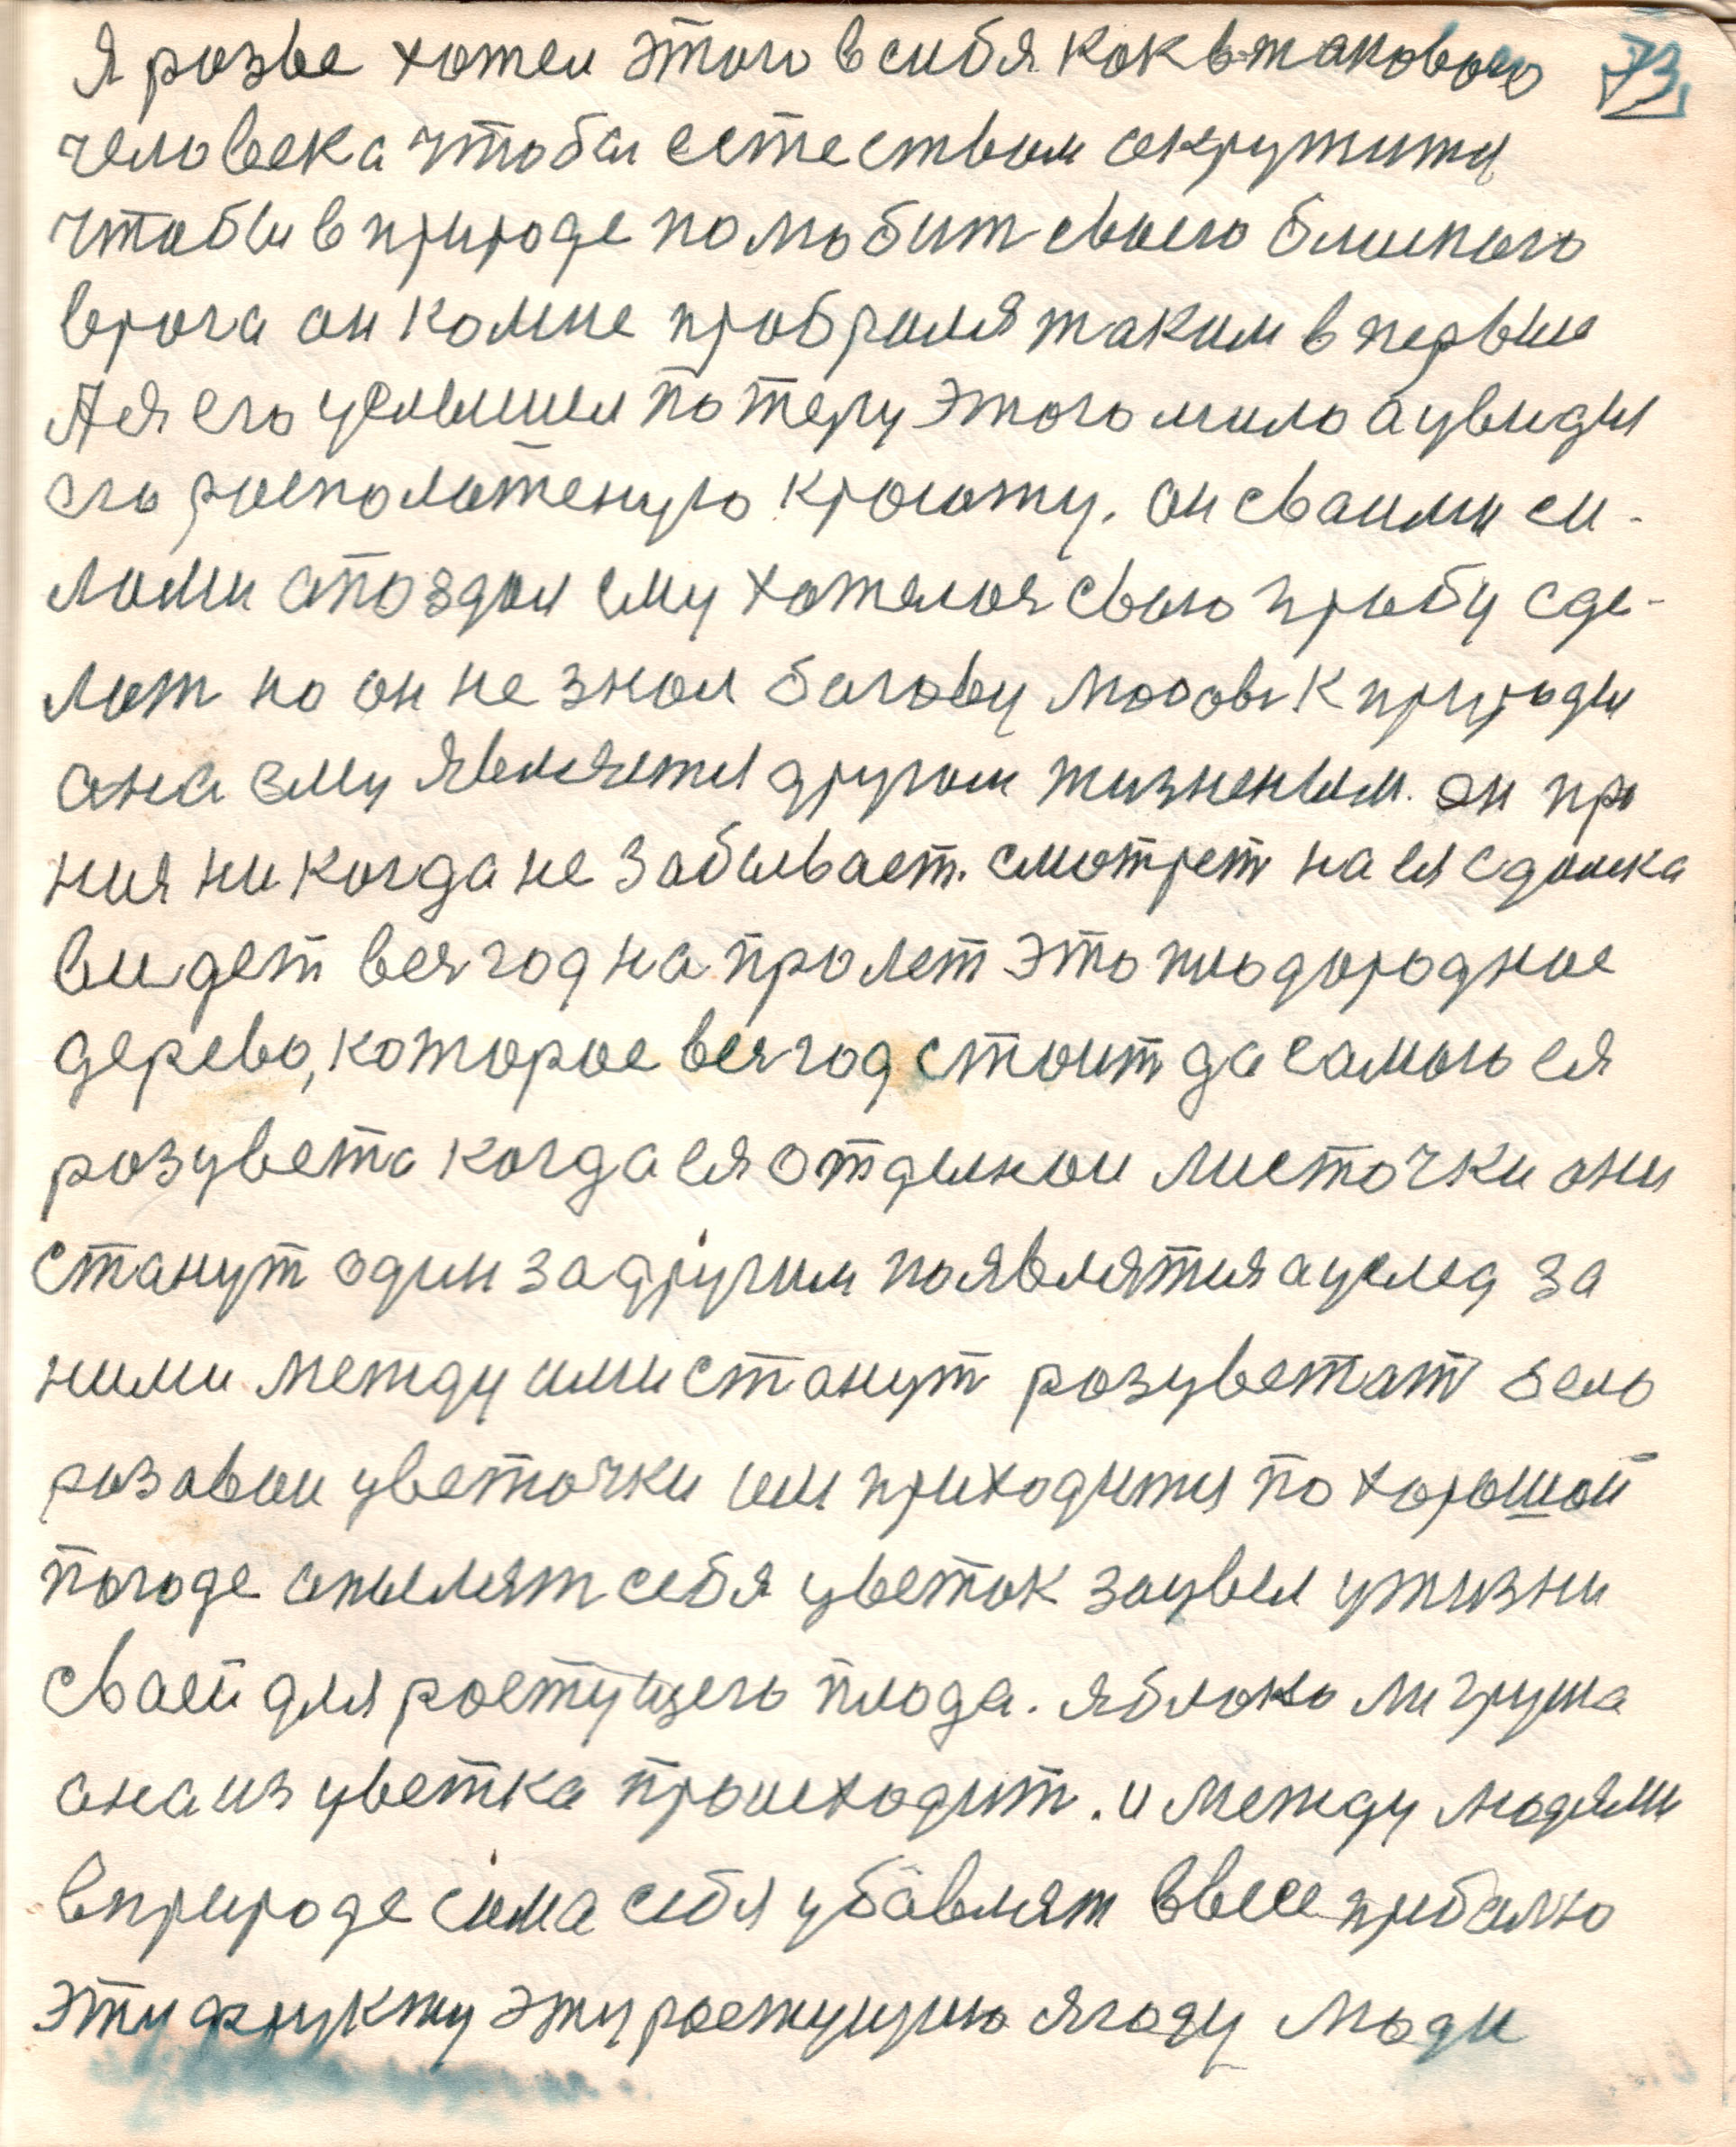 Я розве хотел этого в сибя как в такового 73.
человека чтобы естеством окружити
чтобы в природе полюбит своего блиского
врага он ко мне пробрался таким в первые
А я его услышел потеру этого мило а увидил
его росположеную красоту. он сваими си-
лами опоздал ему хотелося свою пробу сде-
лат но он не знал багову любов к природи
она ему являетися другом жизненым. он про
ния никогда не забывает. смотрет на ея с домка
видет вся год на пролет это плодородное
дерево, которое вся год стоит да самого ея
розцвета когда ея отделнои листочки они
станут один за другим появлятися а услед за
ними между ими станут розцветат бело
розавои цветочки им приходитися по хорошой
погоде опылят себя цветок зацвел у жизни
сваей для ростущего плода. яблоко ли груша
она из цветка происходит. и между людями
в природе сила себя убавлят в весе прибалю
эту фрукту эту ростущую ягоду люди